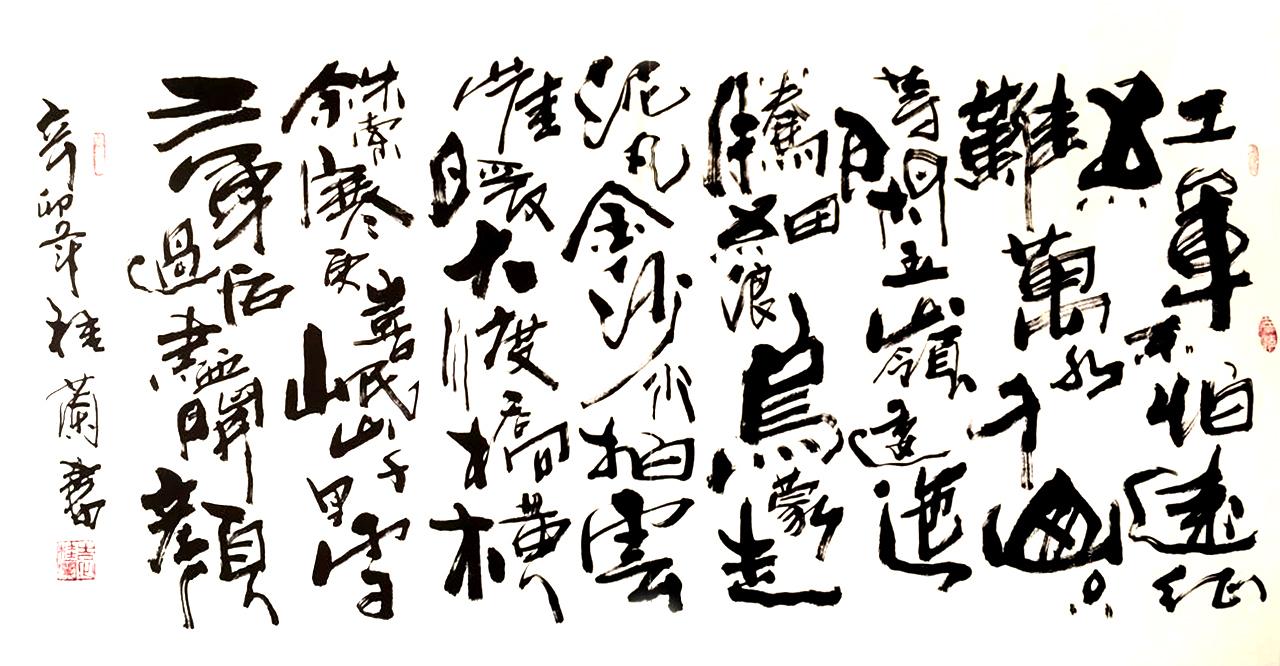 紅軍不怕遠征
難萬水千山只
等閑五嶺逶迤
騰細浪烏蒙走
泥丸金沙水拍雲
崖暖大渡橋橫
鉄索寒更喜岷山千里雪
三軍過后盡開顏
辛卯年桂蘭